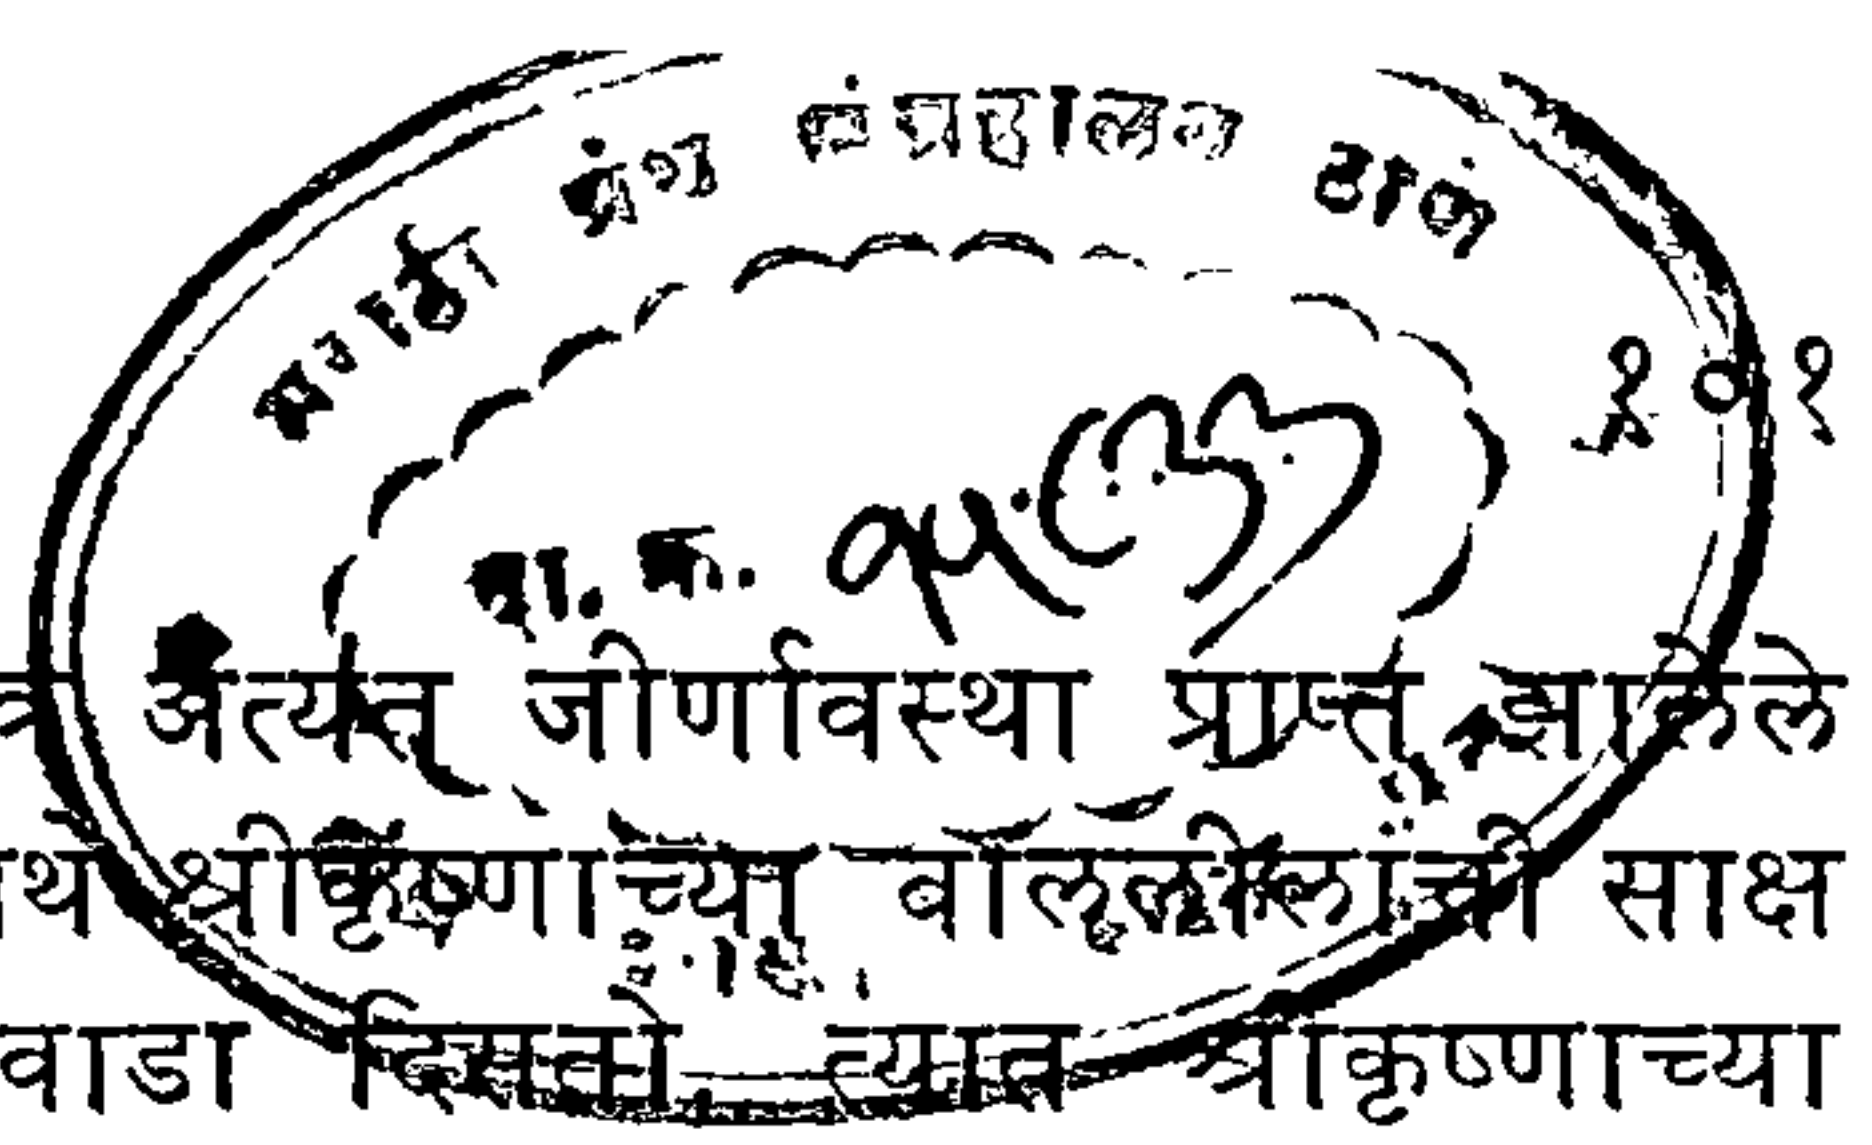 मराठी ग्रंथ संग्रहालय ठाणें
१०१
दा. क्र.
अत्यंत जीर्णावस्था प्राप्त झालेले
श्रीकृष्णाच्या बाललीलांची साक्ष
वाडा दिसतो त्यात श्रीकृष्णाच्या